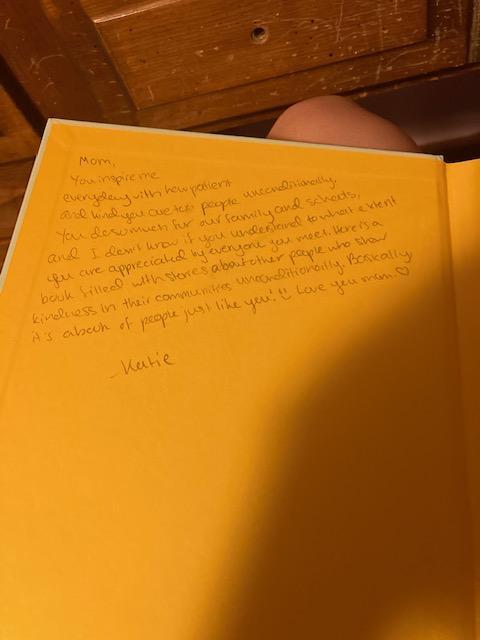 Mom,
You inspire me
everyday with how patient
and kind you are to people unconditionally.
You do so much for our family and schools,
and I don't know if you understand to what extent
you are appreciated by everyone you meet. Here is a
book filled with stories about other people who show
kindness in their communities unconditionally. Basically
it's a book of people just like you! Love you mom ♡
- Katie